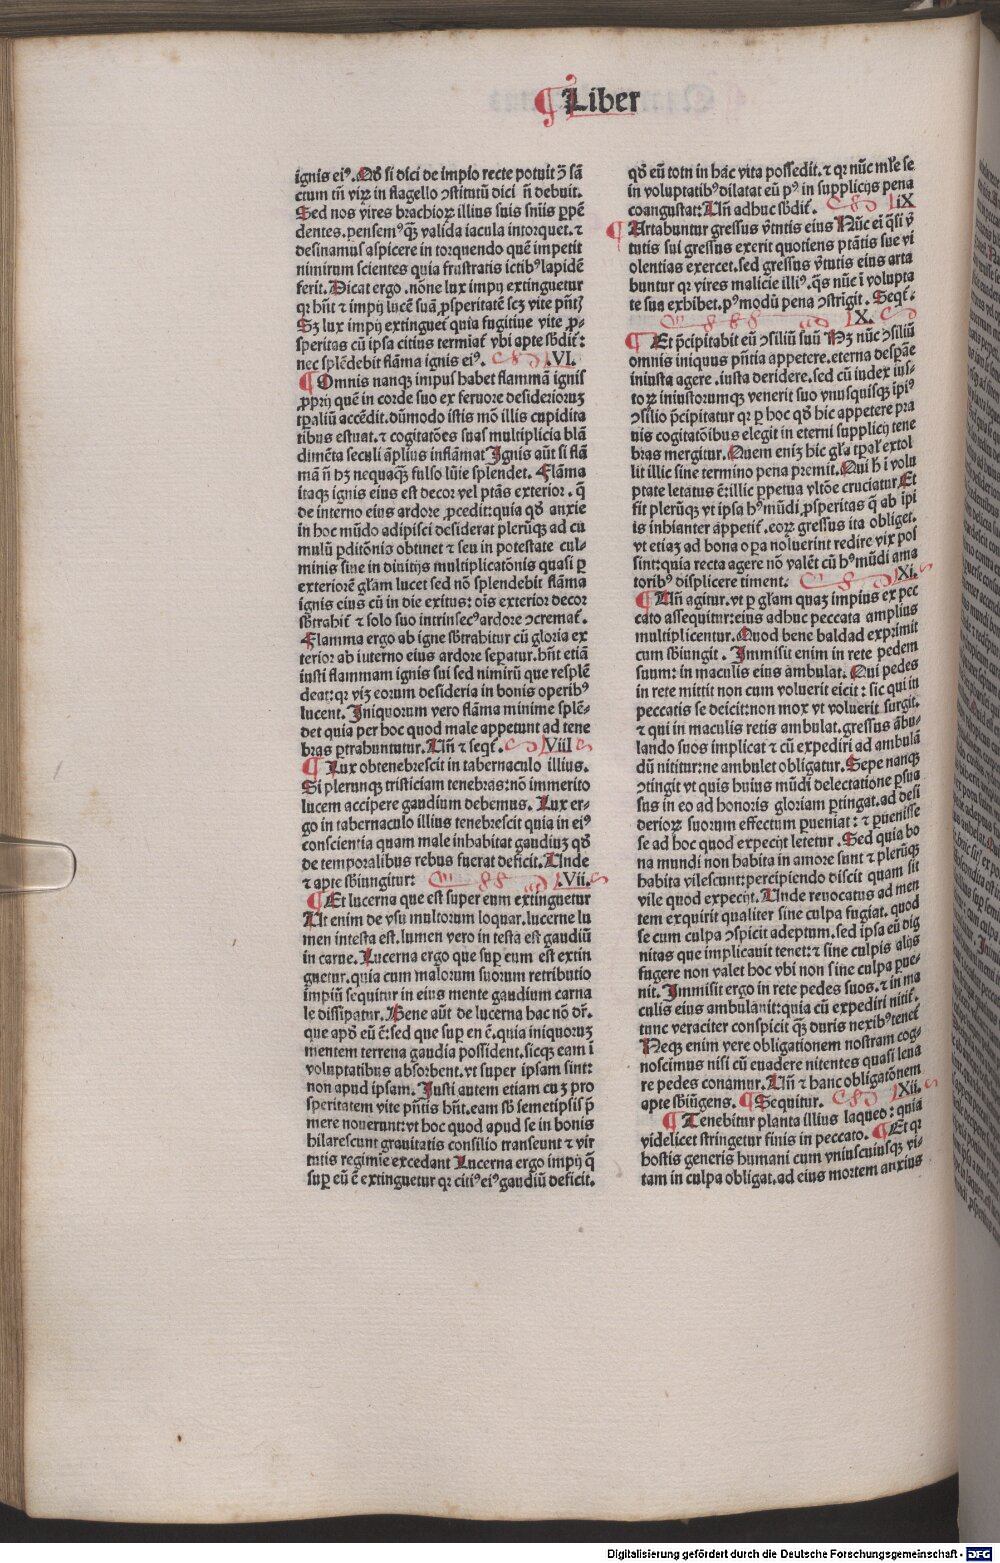 ¶ Liber
ignis ei⁹. Qđ si dici de impio recte potuit ꝫ sā
ctum tñ viꝝ in flagello ɔstitutū dici ñ debuit.
Sed nos vires brachioꝝ illius suis sniis ꝑpē
dentes. pensem⁹ qꝫ valida iacula intorquet. ⁊
desinamus aspicere in torquendo quē impetit
nimirum scientes quia frustratis ictib⁹ lapidē
ferit. Dicat ergo. nōne lux impij extinguetur
qꝛ hñt ⁊ impij lucē suā ꝓsperitatē scꝫ vite pñt
Sꝫ lux impij extinguet quia fugitiue vite ꝓ-
speritas cū ipsa citius termiat vbi apte sƀdit:
nec splēdebit flāma ignis ei⁹. VI.
¶ Omnis nanqꝫ impus habet flammā ignis
ꝓprij quē in corde suo ex feruore desiderioꝝ
tꝑaliū accēdit. dūmodo istis mō illis cupidita
tibus estuat. ⁊ cogitatōes suas multiplicia blā
dimēta seculi āplius inflāmat Ignis aūt si flā
mā ñ hꝫ nequaqꝫ fulso lūie splendet. Flāma
itaqꝫ ignis eius est decor vel ptās exterior. q̄
de interno eius ardore ꝓcedit: quia qđ anxie
in hoc mūdo adipisci desiderat plerūqꝫ ad cu
mulū ꝑditōnis obtinet ⁊ seu in potestate cul-
minis siue in diuitijs multiplicatōnis quasi ꝑ
exteriorē glam lucet sed nō splendebit flāma
ignis eius cū in die exitus: ois exterior decor
sƀtrahit ⁊ solo suo intrinsec⁹ ardore ɔcremat.
Flamma ergo ab igne sƀtrahitur cū gloria ex
terior ab iuterno eius ardore sepatur. hñt etiā
iusti flammam ignis sui sed nimirū que resplē
deat: qꝛ viꝫ eorum desideria in bonis operib⁹
lucent. Iniquorum vero flāma minime splē-
det quia per hoc quod male appetunt ad tene
bras ꝑtrahuntutur. Uñ ⁊ seqt. VIII
¶ Lux obtenebrescit in tabernaculo illius.
Si plerunqꝫ tristiciam tenebras: nō immerito
lucem accipere gaudium debemus. Lux er-
go in tabernaculo illius tenebrescit quia in ei⁹
conscientia quam male inhabitat gaudiuꝫ qđ
de temporalibus rebus fuerat deficit. Unde
⁊ apte sƀiungitur: .Vii.
¶ Et lucerna que est super eum extinguetur
Ut enim de vsu multorum loquar. lucerne lu
men intesta est. lumen vero in testa est gaudiū
in carne. Lucerna ergo que suꝑ eum est extin
guetur. quia cum malorum suorum retributio
impiū sequitur in eius mente gaudium carna
le dissipatur. Bene aūt de lucerna hac nō dr̄.
que apđ eū ē: sed que suꝑ en ē. quia iniquoruꝫ
mentem terrena gaudia possident. sicqꝫ eam ī
voluptatibus absorbent. vt super ipsam sint:
non apud ipsam. Iusti autem etiam cuꝫ pro
speritatem vite pñtis hñt. eam sƀ semetipsis p̄
mere nouerunt: vt hoc quod apud se in bonis
hilarescunt grauitatis consilio transeunt ⁊ vir
tutis regimie excedant Lucerna ergo impij q̄
suꝑ eū ē extinguetur qꝛ citi⁹ ei⁹ gaudiū deficit.
qđ eū totn in hāc vita possedit. ⁊ qꝛ nūc mle se
in voluptatib⁹ dilatat eū p⁹ in supplicijs pena
coangustat: Uñ adhuc sƀdit. IX
¶ Artabuntur gressus v̄tutis eius Nūc ei q̄si v̄
tutis sui gressus exerit quotiens ptātis sue vi
olentias exercet. sed gressus v̄tutis eius arta
buntur qꝛ vires malicie illi⁹. q̄s nūc ī volupta
te sua exhibet. p⁹modū pena ɔstrigit. Seqt:
X.
¶ Et p̄cipitabit eū ɔsiliū suū Mꝫ nūc ɔsiliū
omnis iniquus pñtia appetere. eterna despāe
iniusta agere. iusta deridere. sed cū iudex ius-
toꝝ iniustorumqꝫ venerit suo vnusquisqꝫ ipi⁹
ɔsilio p̄cipitatur qꝛ ꝑ hoc qđ hic appetere pra
uis cogitatōibus elegit in eterni supplicij tene
bras mergitur. Quem eniꝫ hic gla tꝑal extol
lit illic sine termino pena premit. Qui h̄ i volu
ptate letatus ē: illic ꝑpetua vltōe cruciatur. Et
fit plerūqꝫ vt ipsa h⁹ mūdi ꝓsperitas q̄ ab ipi
is inhianter appetit. eoꝝ gressus ita obliget.
vt etiaꝫ ad bona oꝑa noluerint redire vix pos
sint: quia recta agere nō valēt cū h⁹ mūdi ama
torib⁹ displicere timent. Xi.
¶ Uñ agitur. vt ꝑ glam quaꝫ impius ex pec
cato assequitur: eius adhuc peccata amplius
multiplicentur. Quod bene baldad exprimit
cum sƀiungit. Immisit enim in rete pedem
suum: in maculis eius ambulat. Qui pedes
in rete mittit non cum voluerit eicit: sic qui in
peccatis se deicit: non mox vt voluerit surgit.
⁊ qui in maculis retis ambulat. gressus ābu-
lando suos implicat ⁊ cū expediri ad ambulā
dū nititur: ne ambulet obligatur. Sepe nanqꝫ
ɔtingit vt quis huius mūdi delectatione ꝑsua
sus in eo ad honoris gloriam ꝑtingat. ad desi
derioꝝ suorum effectum ꝑueniat: ⁊ ꝑuenisse
se ad hoc quod expecijt letetur. Sed quia bo
na mundi non habita in amore sunt ⁊ plerūqꝫ
habita vilescunt: percipiendo discit quam sit
vile quod expecijt. Unde reuocatus ad men
tem exquirit qualiter sine culpa fugiat. quod
se cum culpa ɔspicit adeptum. sed ipsa eū dig
nitas que implicauit tenet: ⁊ sine culpis alijs
fugere non valet hoc vbi non sine culpa ꝑue-
nit. Immisit ergo in rete pedes suos. ⁊ in ma
culis eius ambulauit: quia cū expediri nitit.
tunc veraciter conspicit qꝫ duris nexib⁹ tenet
Neqꝫ enim vere obligationem nostram cog-
noscimus nisi cū euadere nitentes quasi leua
re pedes conamur. Uñ ⁊ hanc obligatōnem
apte sƀiūgens. ¶ Sequitur. Xii.
¶ Tenebitur planta illius laqueo: quia
videlicet stringetur finis in peccato. ¶ Et qꝛ
hostis generis humani cum vniuscuiusqꝫ vi-
tam in culpa obligat. ad eius mortem anxius
Digitalisierung gefördert durch die Deutsche Forschungsgemeinschaft - DFG